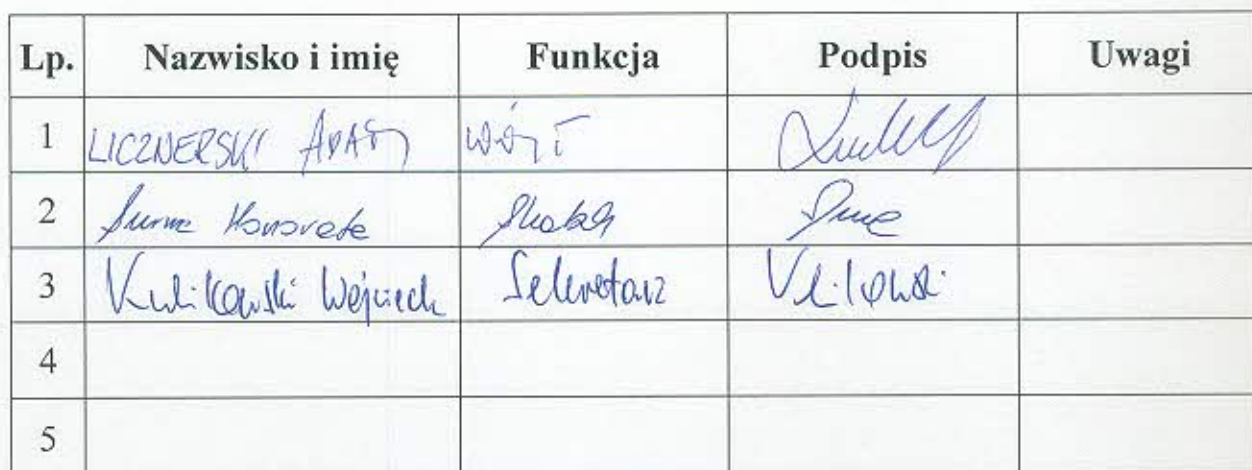 Lp. Nazwisko i imię Funkcja Podpis Uwagi
1 LICZNERSKI ADAM WÓJT
2 Honorata
3 Kulikowski Wojciech Sekretarz
4
5